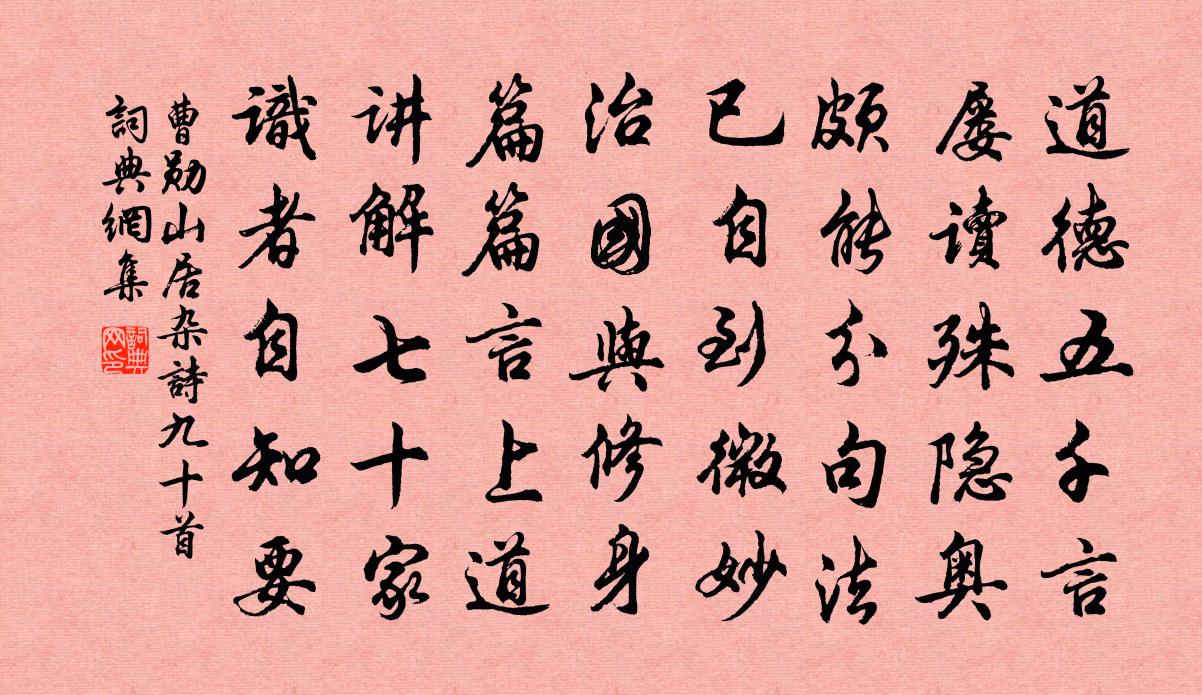 道德五千言
屡讀殊隐奥
颇能分句法
已自到微妙
治國與修身
篇篇言上道
讲解七十家
識者自知要
曹勋山居杂詩九十首
詞典網集
詞典网印